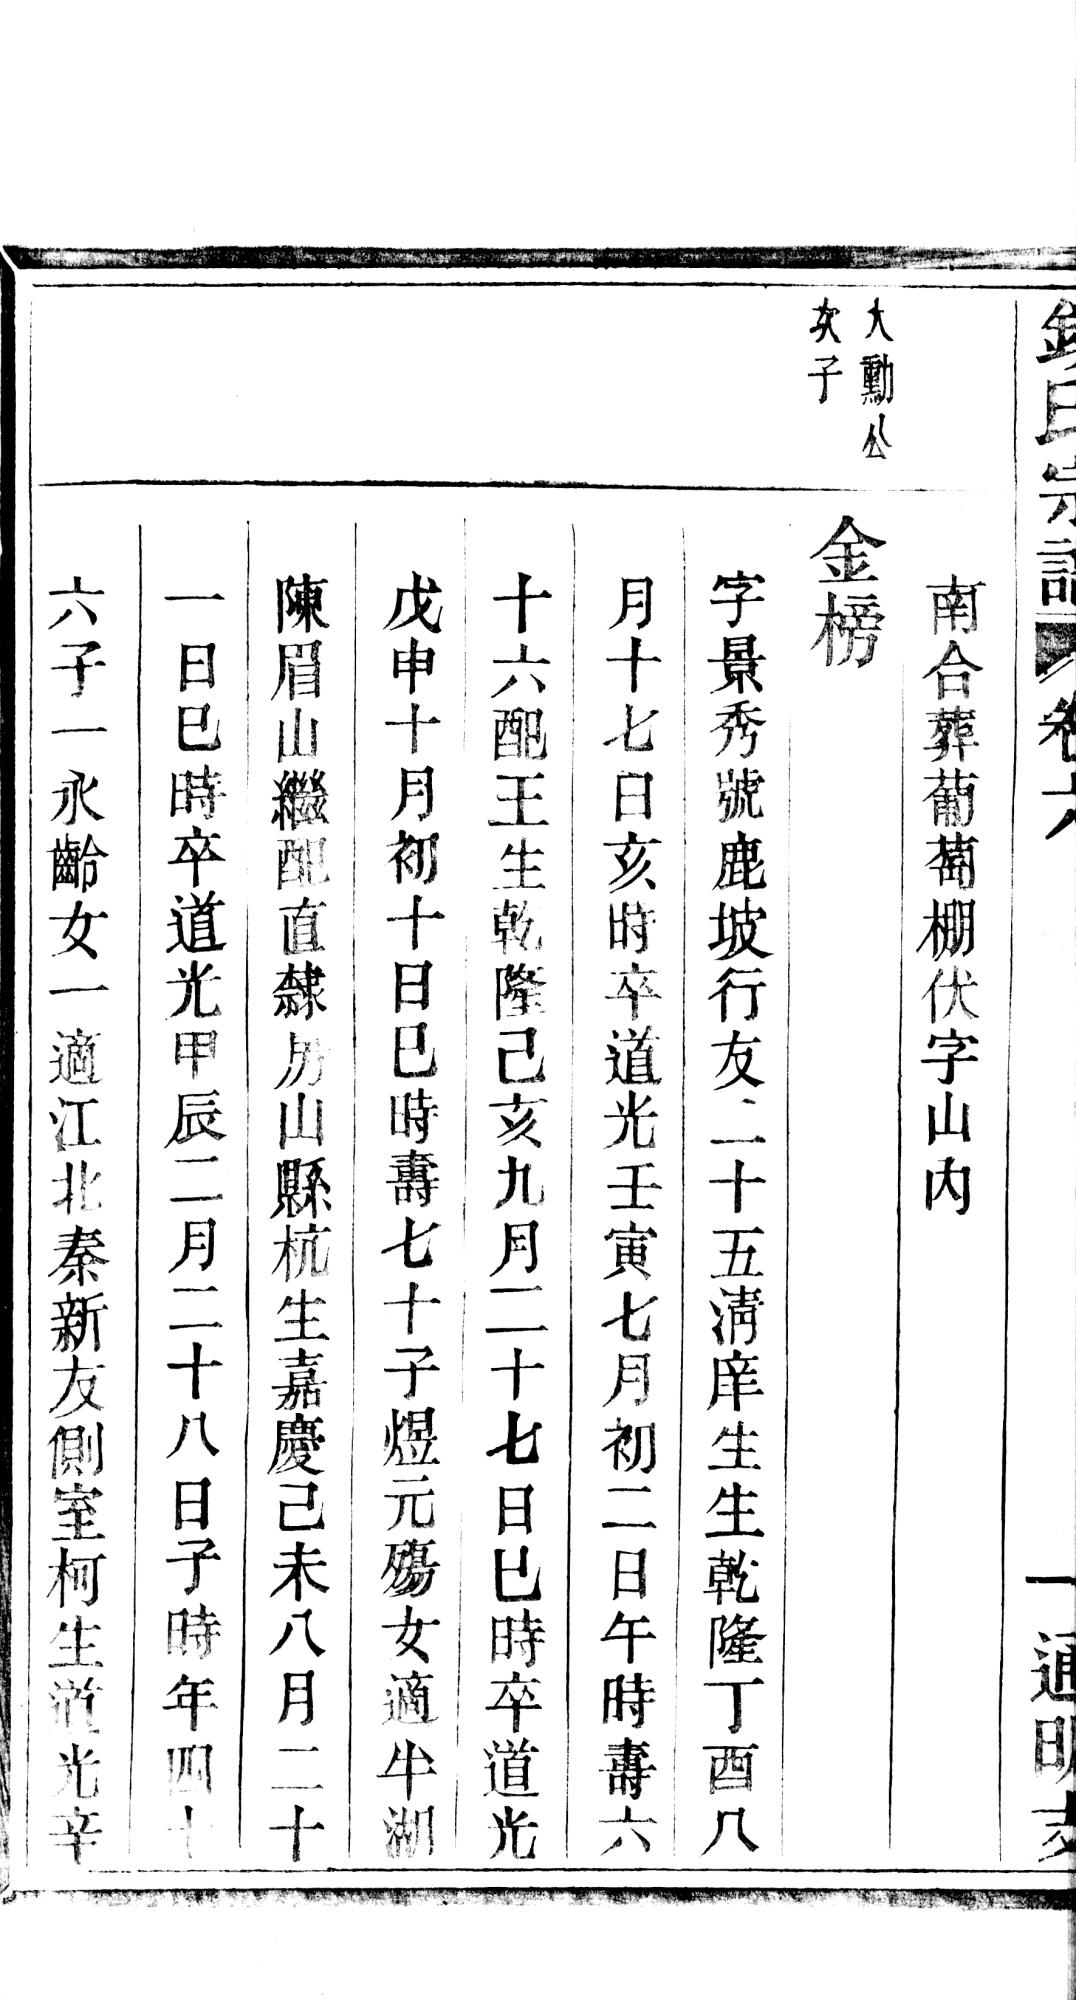 氏宗譜 卷六 一 通明支
南合葬葡萄棚伏字山內
大勳公
次子
金榜
字景秀號鹿坡行友二十五清庠生生乾隆丁酉八
月十七日亥時卒道光壬寅七月初二日午時壽六
十六配王生乾隆己亥九月二十七日巳時卒道光
戊申十月初十日巳時壽七十子煜元殤女適牛湖
陳眉山繼配直隸房山縣杭生嘉慶己未八月二十
一日巳時卒道光甲辰二月二十八日子時年四十
六子一永齡女一適江北秦新友側室柯生道光辛